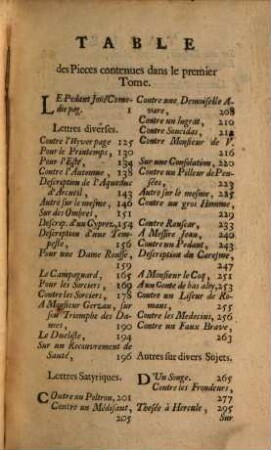 TABLE
des Pieces contenues dans le premier
Tome.
LE Pedant Joüé Come-
die pag. 1
Lettres diverses.
Contre l'Hyver page 125
Pour le Printemps, 130
Pour l'Esté, 134
Contre l'Automne, 138
Description de l'Aqueduc
d'Arcueil, 143
Autre sur le mesme, 146
Sur des Ombres, 151
Descrip. d'un Cyprez, 154
Description d'une Tem-
peste, 156
Pour une Dame Rousse,
159
Le Campagnard, 165
Pour les Sorciers, 169
Contre les Sorciers, 178
A Monsieur Gerzan, sur
son Triomphe des Da-
mes, 190
Le Dueliste, 194
Sur un Recouvrement de
Santé, 196
Lettres Satyriques.
COntre un Poltron, 201
Contre un Médisant,
205
Contre une Demoiselle A-
vare, 208
Contre un Ingrat, 210
Contre Soucidas, 212
Contre Monsieur de V.
216
Sur une Consolation, 220
Contre un Pilleur de Pen-
sées, 223
Autre sur le mesme, 225
Contre un gros Homme,
229
Contre Ronscar, 233
A Messire Jean, 240
Contre un Pedant, 243
Description du Caresme,
247
A Monsieur le Coq, 251
Aun Comte de bas aloy, 253
Contre un Liseur de Ro-
mans, 255
Contre les Medecins, 256
Contre un Faux Brave,
263
Autres sur divers Sujets.
D'Un Songe. 265
Contre les Frondeurs,
277
Thesée à Hercule, 295
Sur